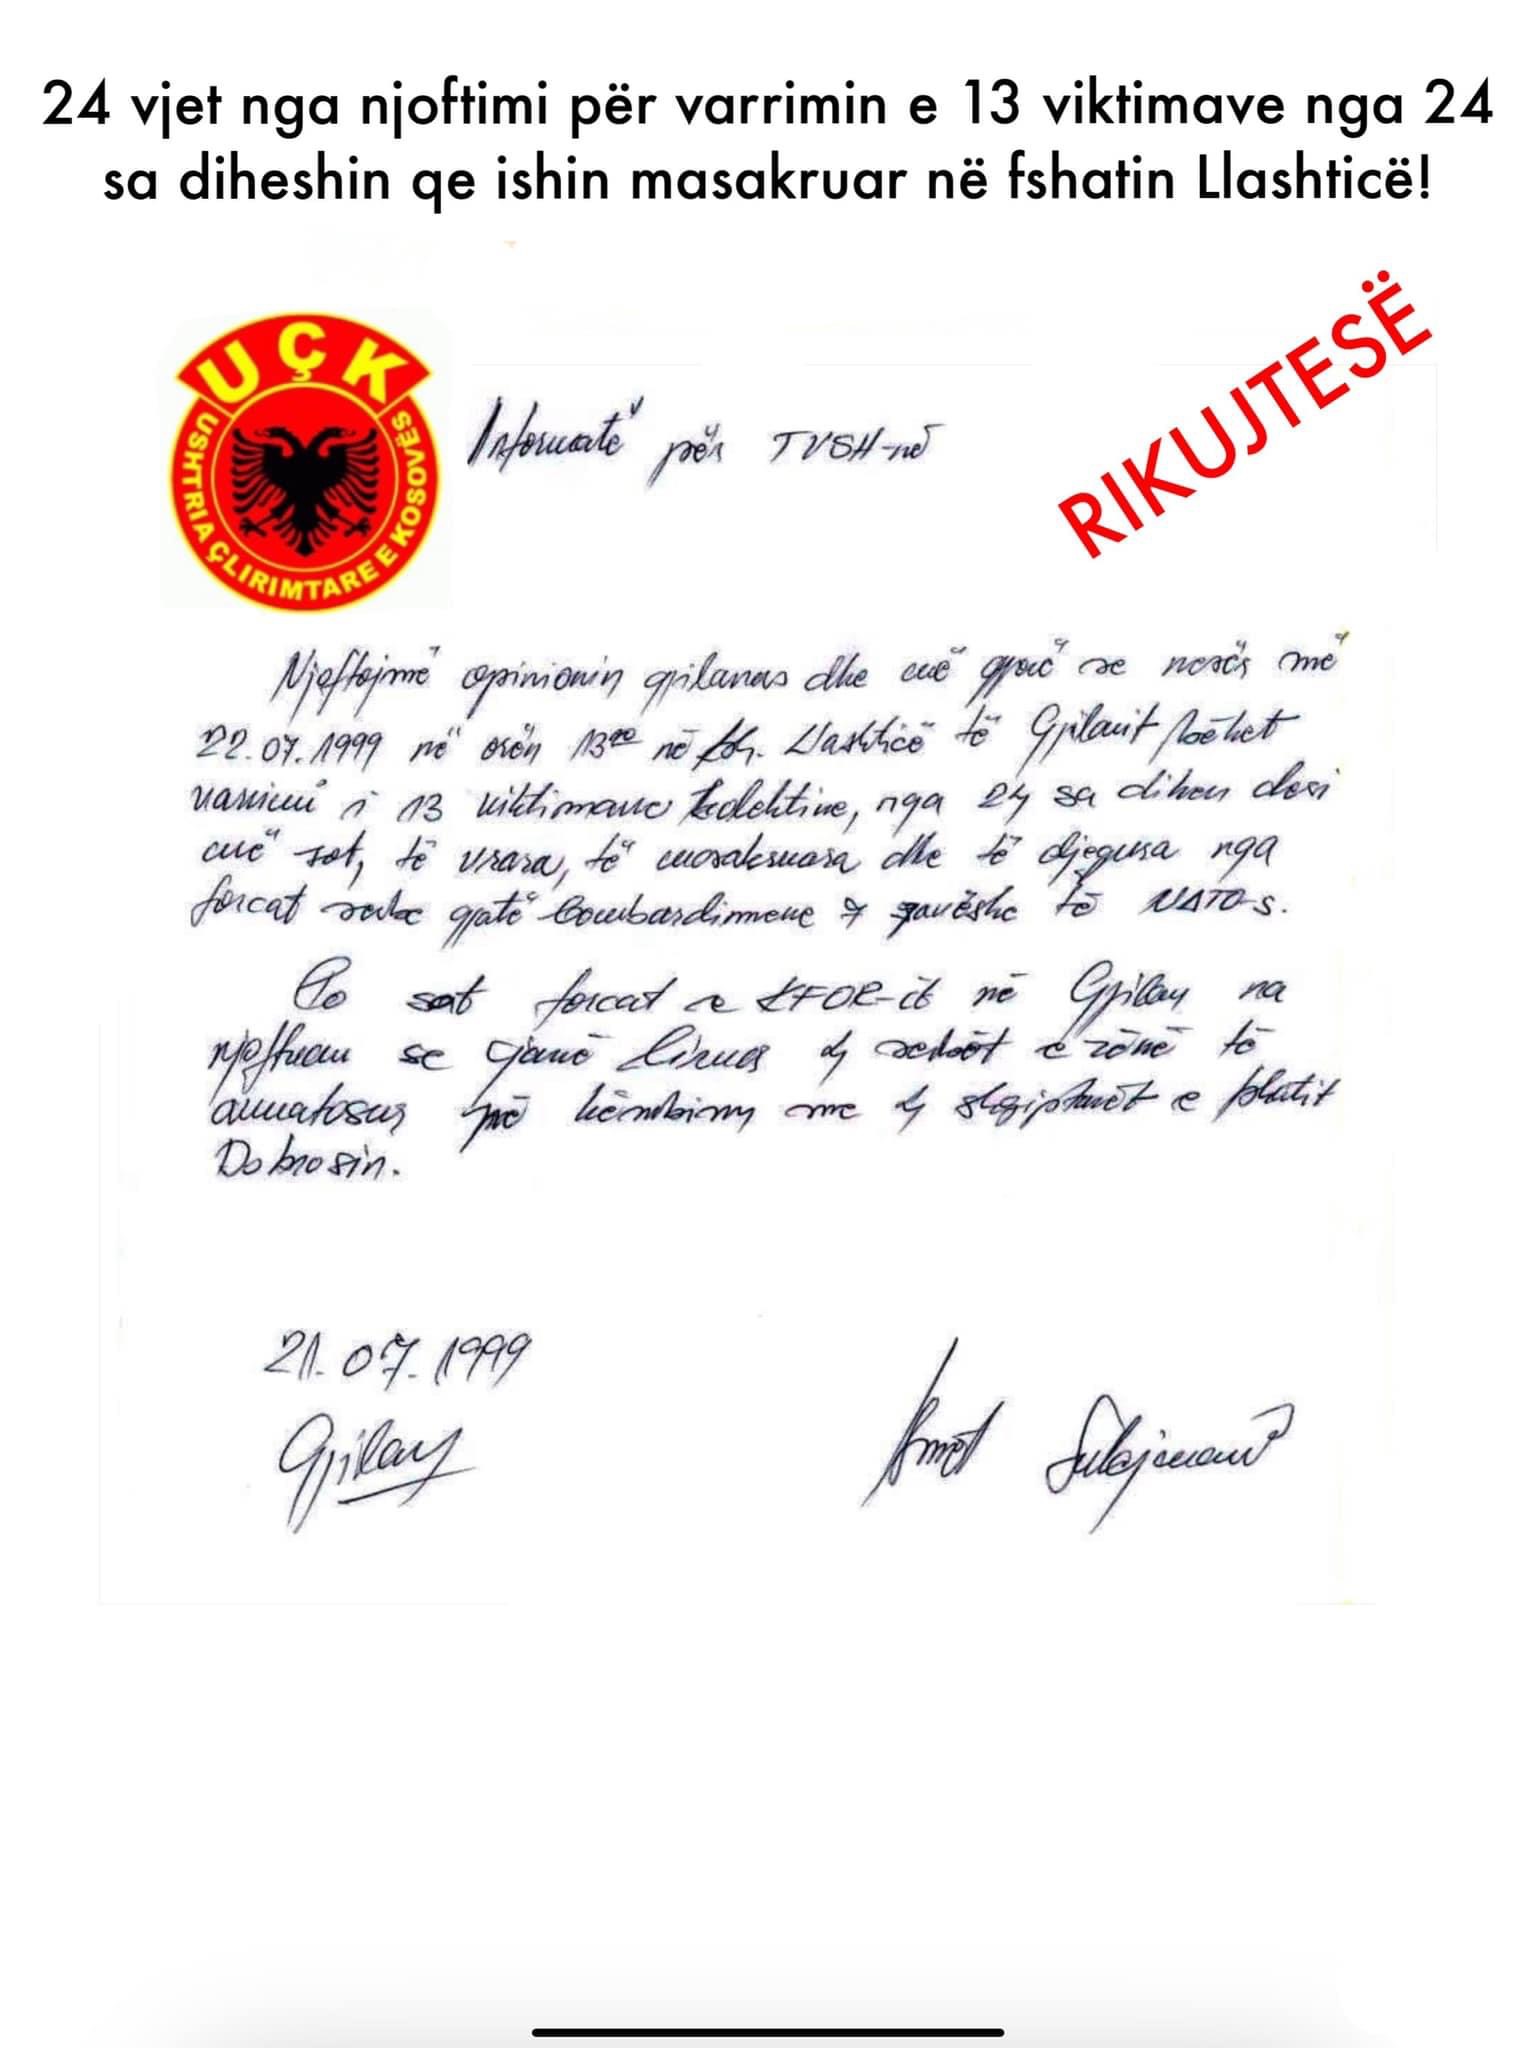 24 vjet nga njoftimi për varrimin e 13 viktimave nga 24
sa diheshin qe ishin masakruar në fshatin Llashticë!
RIKUJTESË
UÇK
USHTRIA ÇLIRIMTARE E KOSOVËS
Informatë për TVSH-në
Njoftojmë opinionin gjilanas dhe më gjerë se nesër më
22.07.1999 në orën 13⁰⁰ në fsh. Llashticë të Gjilanit bëhet
varrimi i 13 viktimave kolektive, nga 24 sa dihen deri
më sot, të vrara, të masakruara dhe të djegura nga
forcat serbe gjatë bombardimeve 7 javëshe të NATO-s.
Po sot forcat e KFOR-it në Gjilan na
njoftuan se janë liruar 4 serbët e zënë të
armatosur në këmbim me 4 shqiptarët e fshatit
Dobrosin.
21.07.1999
Gjilan
Ismet Sulejmani